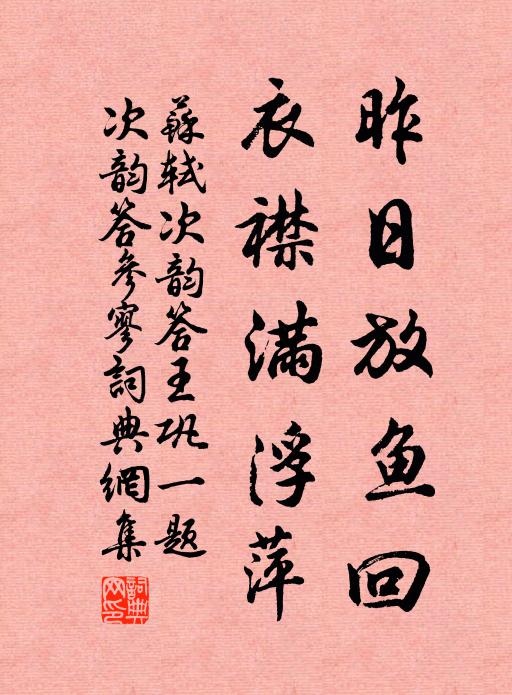 昨日放鱼回
衣襟满浮萍
蘇轼次韵答王巩一题
次韵答参寥詞典網集
詞典
网印